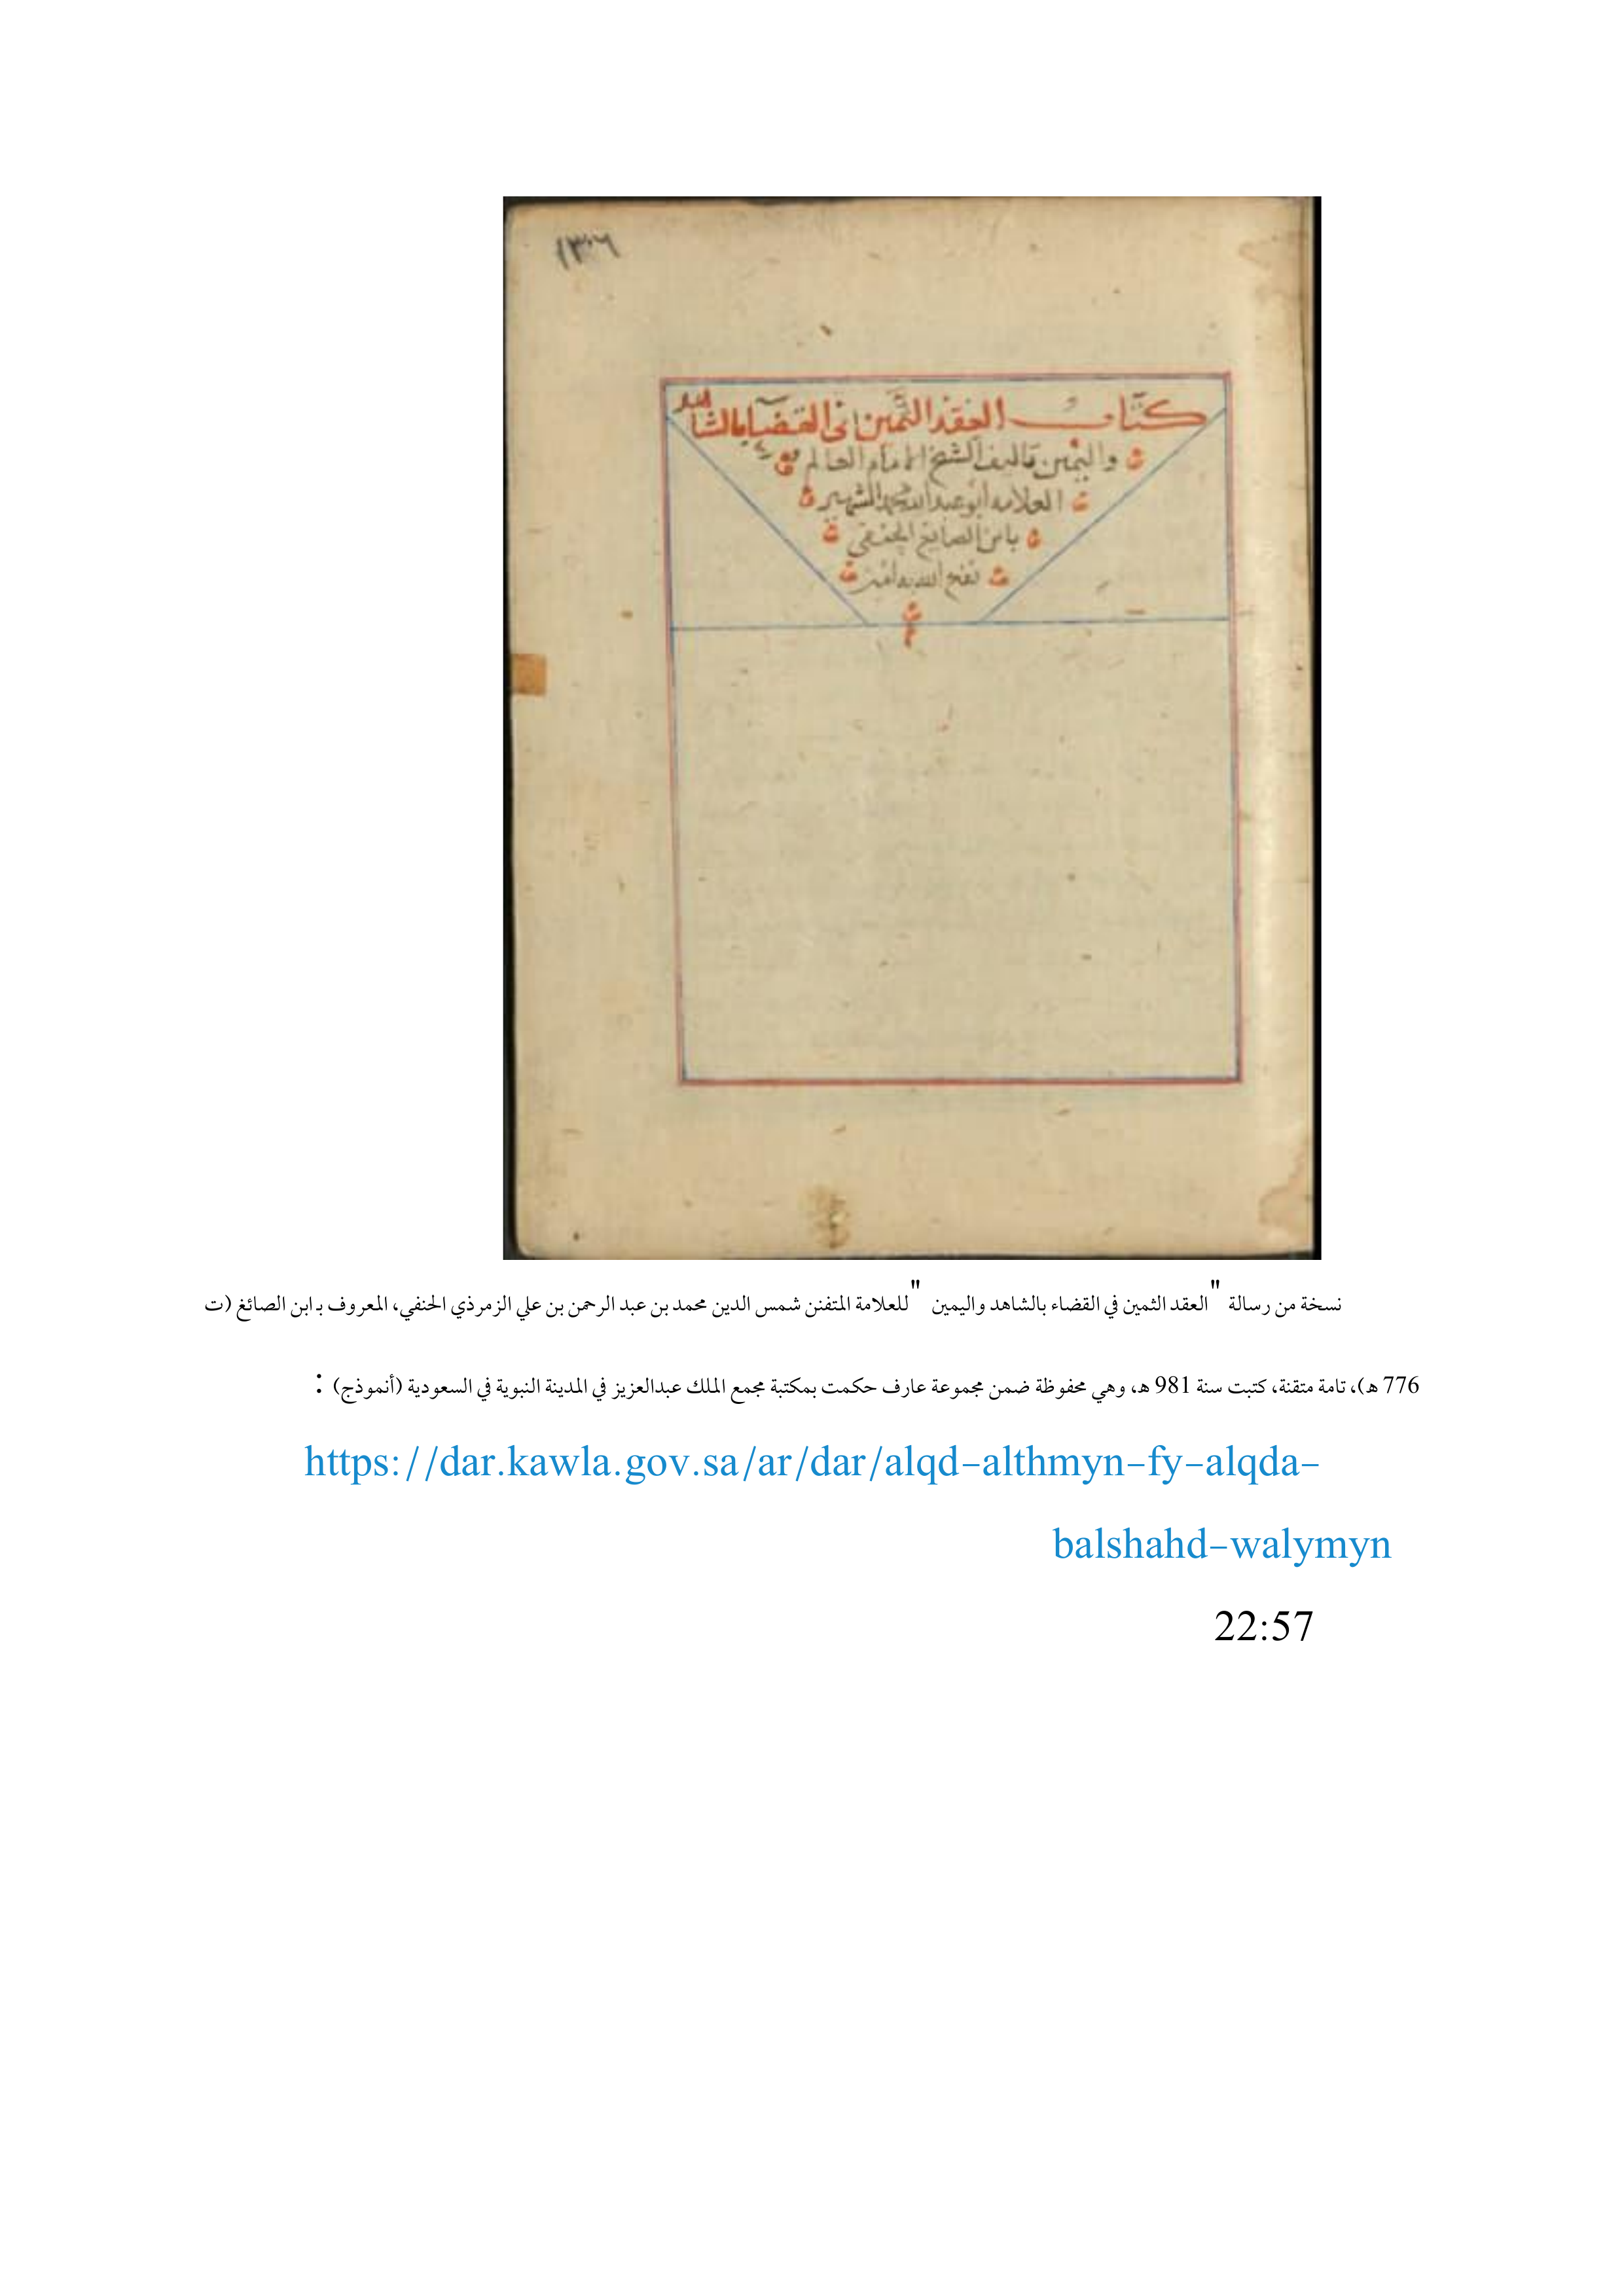 ١٣٠٦
كتاب العقد الثمين في القضا بالشاهد
واليمين تاليف الشيخ الامام العالم
العلامه ابو عبد الله محمد الشهير
بابن الصايغ الحنفي
نفع الله به امين
نسخة من رسالة "العقد الثمين في القضاء بالشاهد واليمين" للعلامة المتفنن شمس الدين محمد بن عبد الرحمن بن علي الزمرذي الحنفي، المعروف بـ ابن الصائغ (ت
776 هـ)، تامة متقنة، كتبت سنة 981 هـ، وهي محفوظة ضمن مجموعة عارف حكمت بمكتبة مجمع الملك عبدالعزيز في المدينة النبوية في السعودية (أنموذج) :
https://dar.kawla.gov.sa/ar/dar/alqd-althmyn-fy-alqda-
balshahd-walymyn
22:57